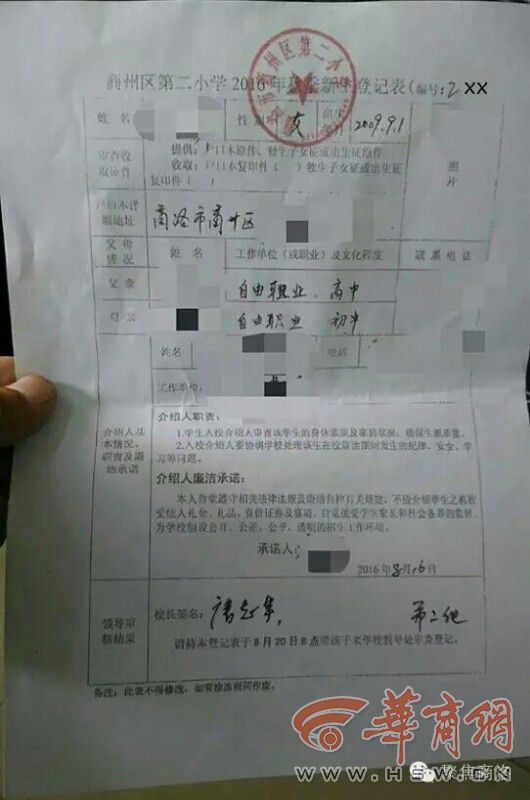 商州区第二小学2016年秋季新生登记表(编号:2XX
姓名 性别 女 出生年月 2009.9.1
审查收取证件 提供:户口本原件、独生子女证或出生证原件
收取:户口本复印件( )独生子女证或出生证
复印件( )
照片
户口本详细地址 商洛市商州区
父母情况 姓名 工作单位(或职业)及文化程度 联系电话
父亲 自由职业、高中
母亲 自由职业 初中
姓名 电话
工作单位:
介绍人基本情况、职责及廉洁承诺
介绍人职责:
1.学生入校介绍人审查该学生的身体素质及家庭状况,确保生源质量。
2.入校介绍人要协调学校处理该生在校就读期间发生的纪律、安全、学
习等问题。
介绍人廉洁承诺:
本人自觉遵守相关法律法规及廉洁自律有关规定,不借介绍学生之机收
受他人礼金、礼品、有价证券及宴请,自觉接受学生家长和社会各界的监督,
为学校创设公开、公正、公平、透明的招生工作环境。
承诺人:
2016年8月16日
领导审核结果 校长签名:
请持本登记表于8月20日8点带孩子来学校教导处审查登记。
备注:此表不得修改,如有涂改视同作废。
华商网
www.HSW.cn
聚焦商洛